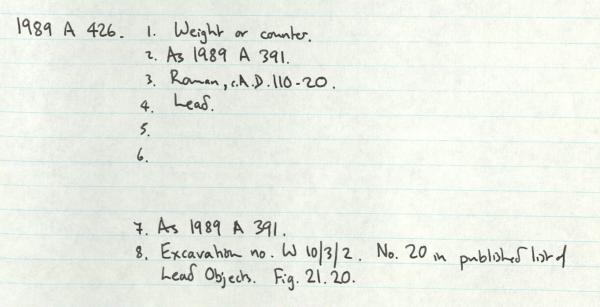 1989 A 426. 1. Weight or counter.
2. As 1989 A 391.
3. Roman, c.A.D.110-20.
4. Lead.
5.
6.
7. As 1989 A 391.
8. Excavation no. W 10/3/2. No. 20 in published list of
Lead Objects. Fig. 21.20.